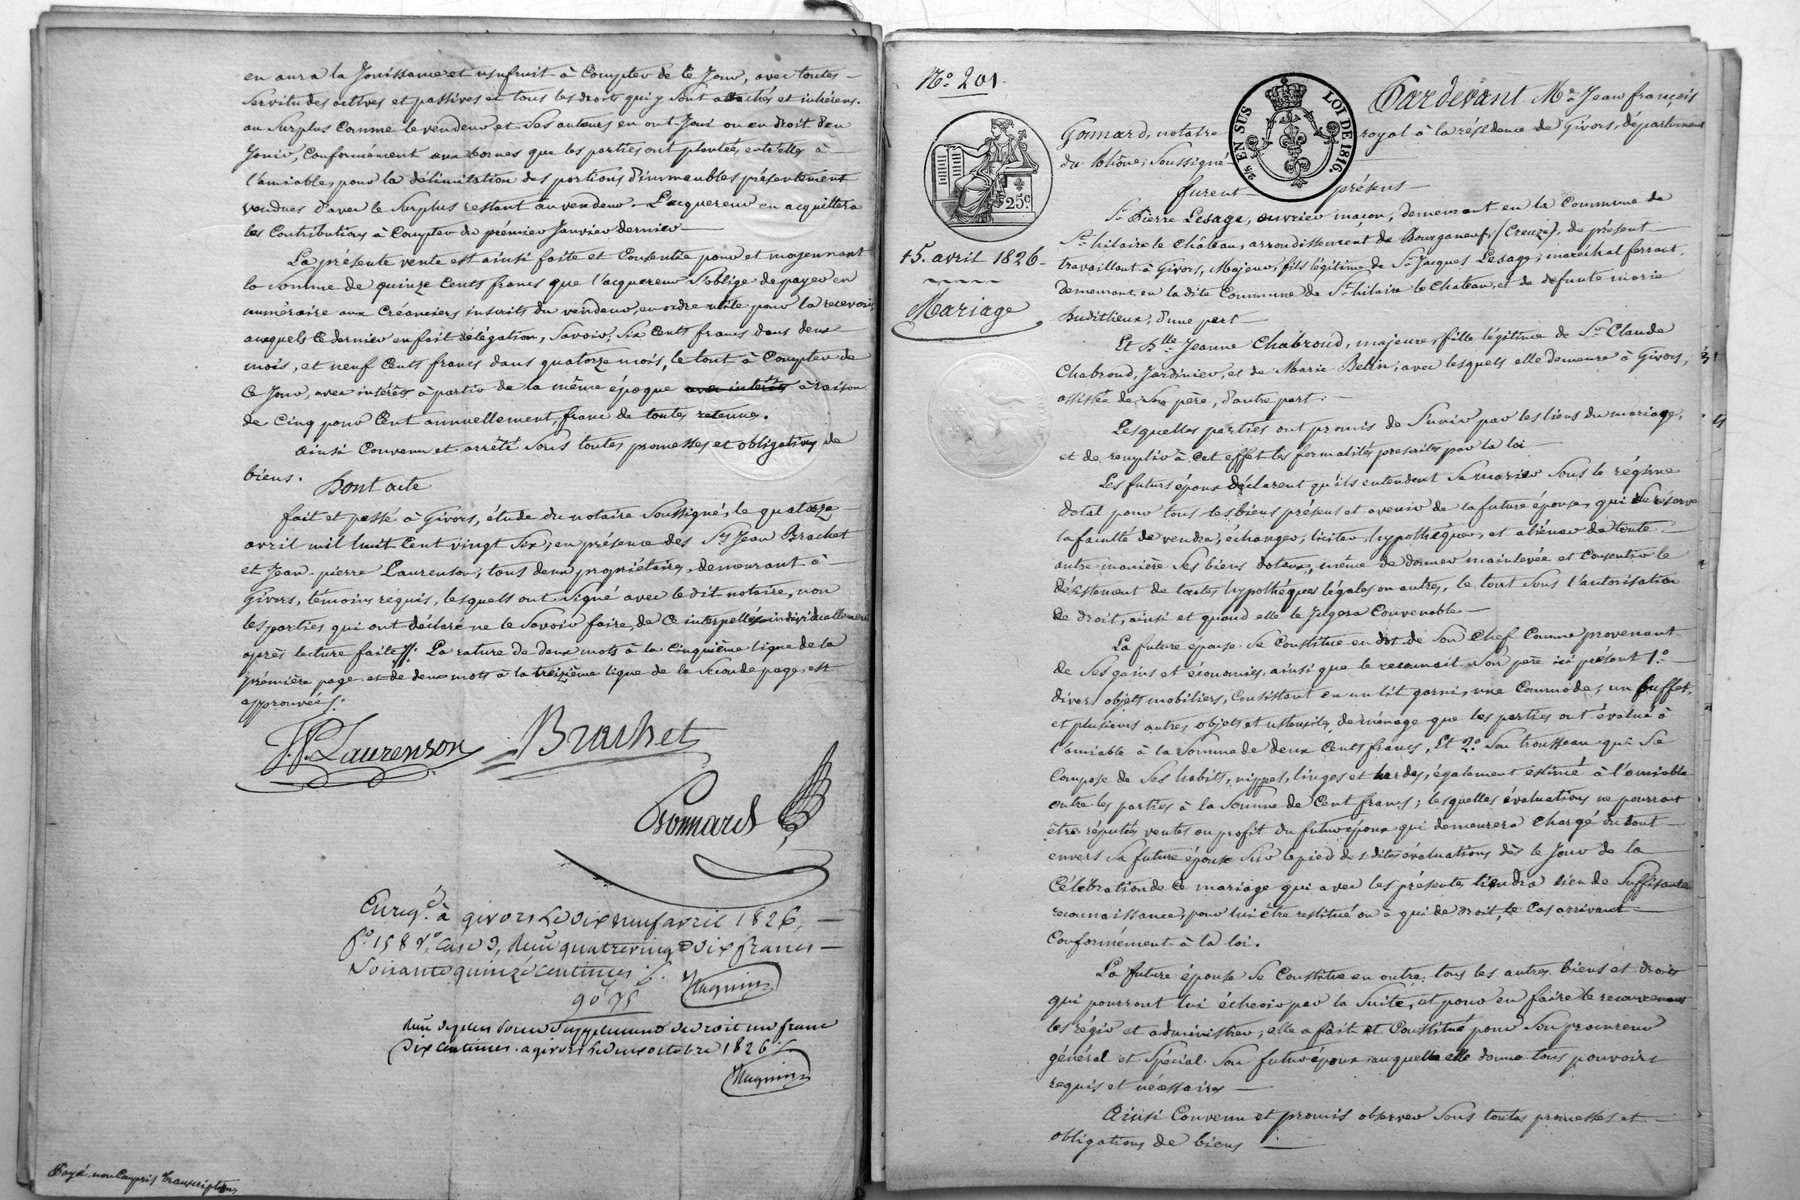 en aura la Jouissance et usufruit à Compter de ce Jour, avec toutes
Servitudes actives et passives et tous les droits qui y sont attachés et inhérens.
au Surplus Comme le vendeur et ses auteurs en ont Joui ou eu droit d'en
Jouir, Conformément aux bornes que les parties ont plantées entr'elles à
l'amiable, pour la délimitation des portions d'immeubles présentement
vendues d'avec le Surplus restant au vendeur. L'acquereur en acquittera
les Contributions à Compter du prémier Janvier dernier
La présente vente est ainsi faite et Consentie pour et moyennant
la Somme de quinze Cents francs que l'acquereur s'oblige de payer en
numéraire aux Créanciers inscrits du vendeur, en ordre utile pour la recevoir,
auxquels ce dernier en fait délégation, Savoir, Six Cents francs dans deux
mois, et neuf Cents francs dans quatorze mois, le tout à Compter de
Ce Jour, avec intérêts à partir de la même époque avec intérêts à raison
de Cinq pour Cent annuellement, franc de toutes retenues.
Ainsi Convenu et arrêté Sous toutes promesses et obligations de
biens. Dont acte
fait et passé à Givors, étude du notaire Soussigné, le quatorze
avril mil huit Cent vingt Six, en présence des Srs Jean Brachet
et Jean-pierre Laurenson, tous deux propriétaires, demeurant à
Givors, témoins réquis, lesquels ont Signé avec le dit notaire, non
les parties qui ont déclaré ne le Savoir faire, de Ce interpellées individuellement
après lecture faite. La rature de deux mots à la Cinquième ligne de la
prémière page et de deux mots à la treizième ligne de la Seconde page, est
approuvée.
J. P. Laurenson Brachet
Gonnard
Enrgé. à givors le dix neuf avril 1826,
fo 158 Vo. case 9, Reçu quatrevingt dix francs
Soixante quinze centimes
90f 75
Hugnin
Reçu de plus pour Supplément de droit un franc
dix centimes. a givors le onze octobre 1826
Hugnin
Payé, non Compris transcription
No. 201.
25 EN SUS LOI DE 1816
25c.
15. avril 1826.
Mariage
Pardevant Me. Jean françois
Gonnard, notaire royal à la résidence de Givors, département
du Rhône, Soussigné
furent présens
Sr. Pierre Lesage, ouvrier maçon, demeurant en la Commune de
St. hilaire le Château, arrondissement de Bourganeuf, (Creuze), de présent
travaillant à Givors, Majeur, fils légitime de Sr. Jacques Lesage, maréchal ferrant,
demeurant en la dite Commune de St. hilaire le Chateau, et de défunte marie
d'une part
Et Dlle. Jeanne Chabroud, majeure, fille légitime de Sr. Claude
Chabroud, Jardinier, et de Marie Belin, avec lesquels elle demeure à Givors,
assistée de Son père, d'autre part.
Lesquelles parties ont promis de S'unir par les liens du mariage,
et de remplir à Cet effet les formalités prescrites par la loi
Les futurs époux déclarent qu'ils entendent Se marier Sous le régime
dotal pour tous les biens présens et avenir de la future épouse, qui Se réserve
la faculté de vendre, échanger, liciter, hypothéquer, et aliéner de toute
autre manière Ses biens dotaux, même de donner mainlevée et Consentir le
désistement de toutes hypothéques légales ou autres, le tout Sous l'autorisation
de droit, ainsi et quand elle le Jugera Convenable
La future épouse Se Constitue en dot de Son Chef Comme provenant
de Ses gains et économies, ainsi que le reconnait Son père ici présent 1o.
divers objets mobiliers, Consistant en un lit garni, une Commode, un buffet,
et plusieurs autres objets et ustensiles de ménage que les parties ont évalué à
l'amiable à la Somme de deux Cents francs, Et 2o. Son trousseau qui Se
Compose de Ses habits, nippes, linges et hardes, également estimé à l'amiable
entre les parties à la Somme de Cent francs; lesquelles évaluations ne pourront
être réputées ventes au profit du futur époux qui demeurera Chargé du tout
envers Sa future épouse Sur le pied des dites évaluations dès le Jour de la
Célébration de Ce mariage qui avec les présentes tiendra lieu de Suffisante
reconnaissance, pour lui être restitué ou à qui de droit le Cas arrivant
Conformément à la loi.
La future épouse Se Constitue en outre tous les autres biens et droits
qui pourront lui échoir par la Suite, et pour en faire le recouvrement
les régir et administrer, elle a fait et Constitué pour Son procureur
général et Spécial Son futur époux auquel elle donne tous pouvoirs
requis et nécessaires
Ainsi Convenu et promis observer Sous toutes promesses et
obligations de biens